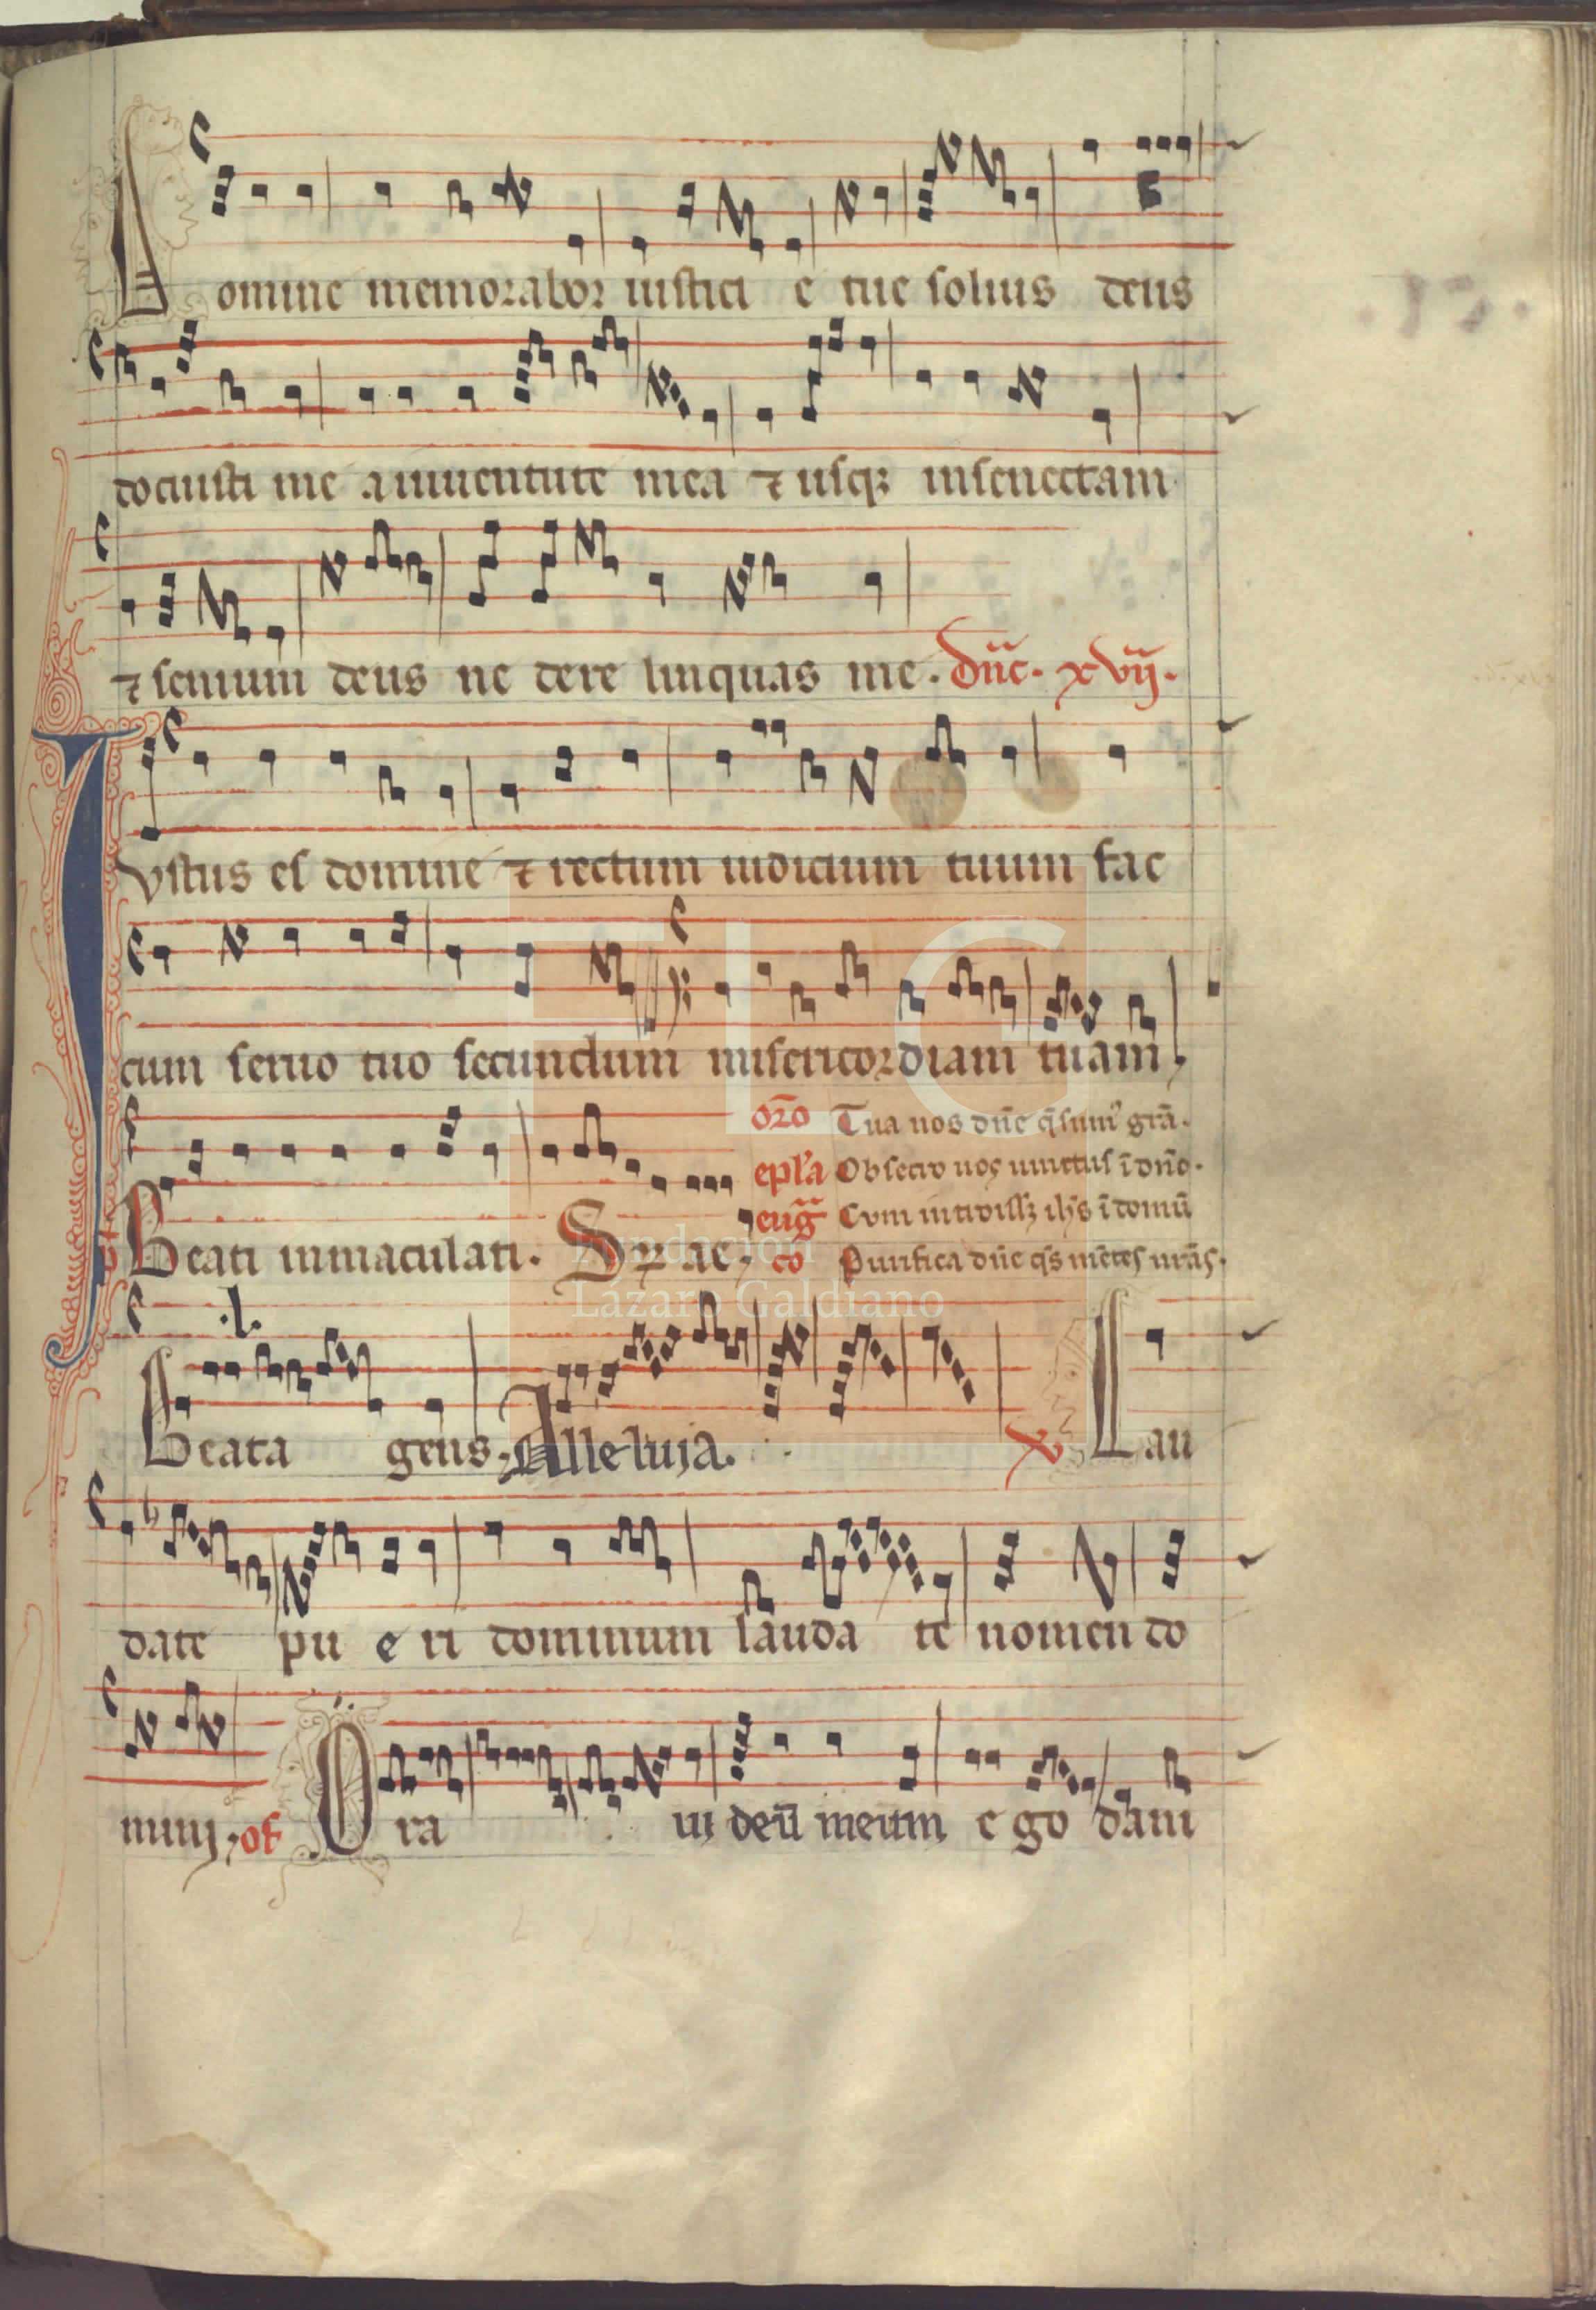 Domine memorabor iustici e tue solius deus
docuisti me a iuuentute mea ⁊ usqꝫ insenectam
⁊ senium deus ne dere linquas me. dn̄c. xvij.
Ivstus es domine ⁊ rectum iudicium tuum fac
cum seruo tuo secundum misericordiam tuam,
or̄o Tua nos dn̄e q̄sum᷒ grā.
ep̄la Obsecro uos uinctus ī dn̄o.
eug̅ Cvm intrass̄ꝫ ih̄s ī domū
p̄ Beati inmaculati. Sp̄ ae, cō Purifica dn̄e q̄s mētes nr̄as.
.l.
Beata gens, Alleluja. ꝟ Lau
date pu e ri dominum lauda te nomen do
minj, of Ora uj deū meum e go dani
FLG
Fundación
Lázaro Galdiano